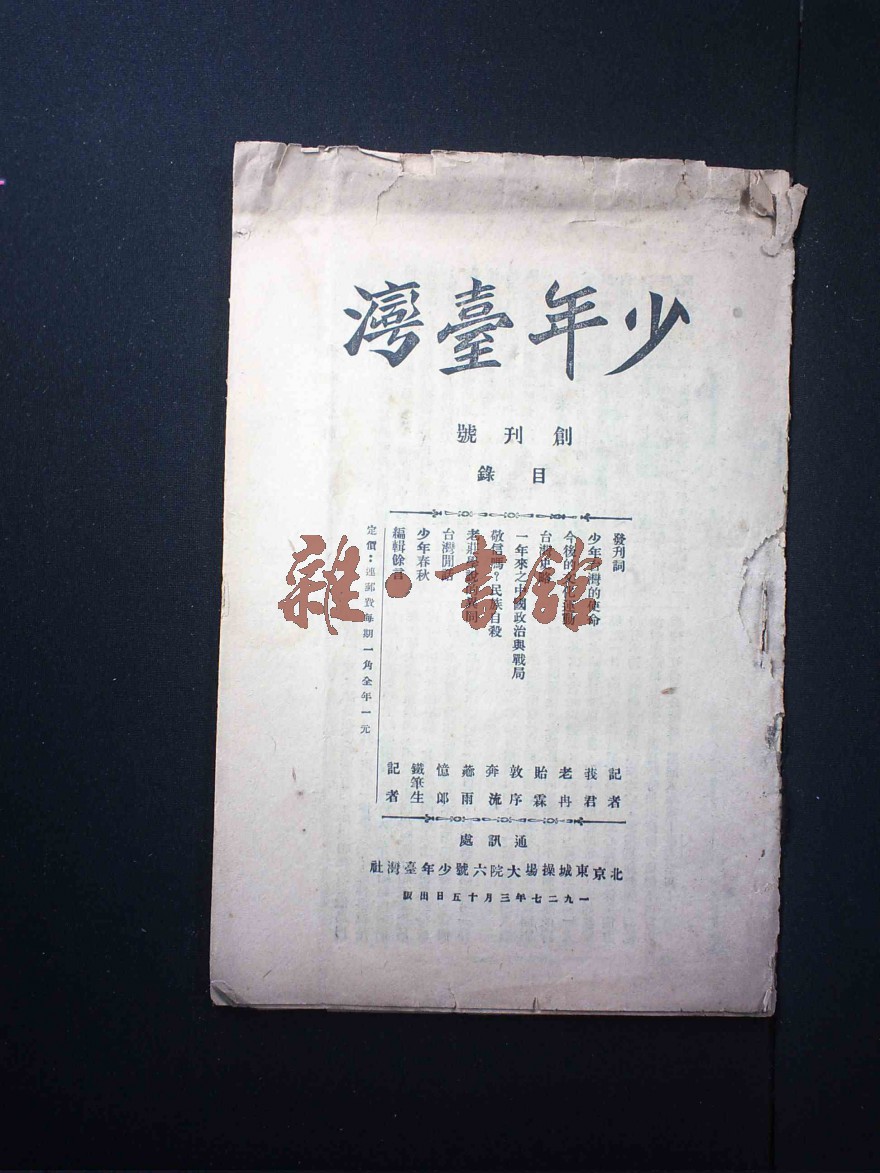 少年臺灣
創刊號
目錄
發刊詞 記者
少年台灣的使命 莪君
今後的文化運動 老冉
台灣史略 貽霖
一年來之中國政治與戰局 敦序
敬信嗎?民族自殺 奔流
老莊學說的異同 雨
台灣閒話 憶郎
少年春秋 鐵筆生
編輯餘言 記者
定價:連郵費每期一角全年一元
通訊處
北京東城操場大院六號少年臺灣社
一九二七年三月十五日出版
雜·書館